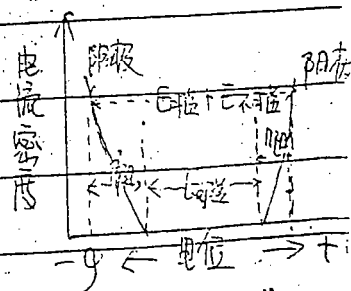 电流密度
阴极
阳极
E可逆+E不可逆
η阴
η阳
E可逆
-φ ← 电位 → +